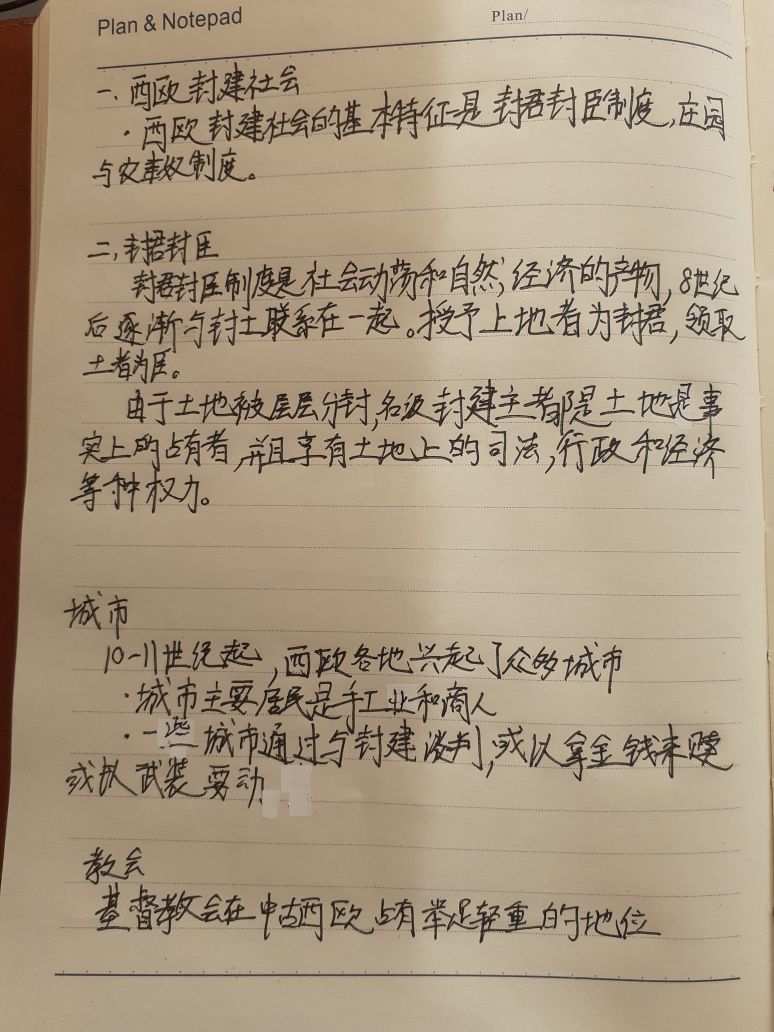 Plan & Notepad
Plan/
一、西欧封建社会
·西欧封建社会的基本特征是封君封臣制度,庄园
与农奴制度。
二,封君封臣
封君封臣制度是社会动荡和自然,经济的产物,8世纪
后逐渐与封土联系在一起。授予上地者为封君,领取
土者为臣。
由于土地被层层分封,各级封建主者都是土地是事
实上的占有者,并且享有土地上的司法,行政和经济
等种权力。
城市
10-11世纪起,西欧各地兴起了众多城市
·城市主要居民是手工业和商人
·一些城市通过与封建谈判,或以拿金钱来赎
或以武装要动
教会
基督教会在中古西欧占有举足轻重的地位